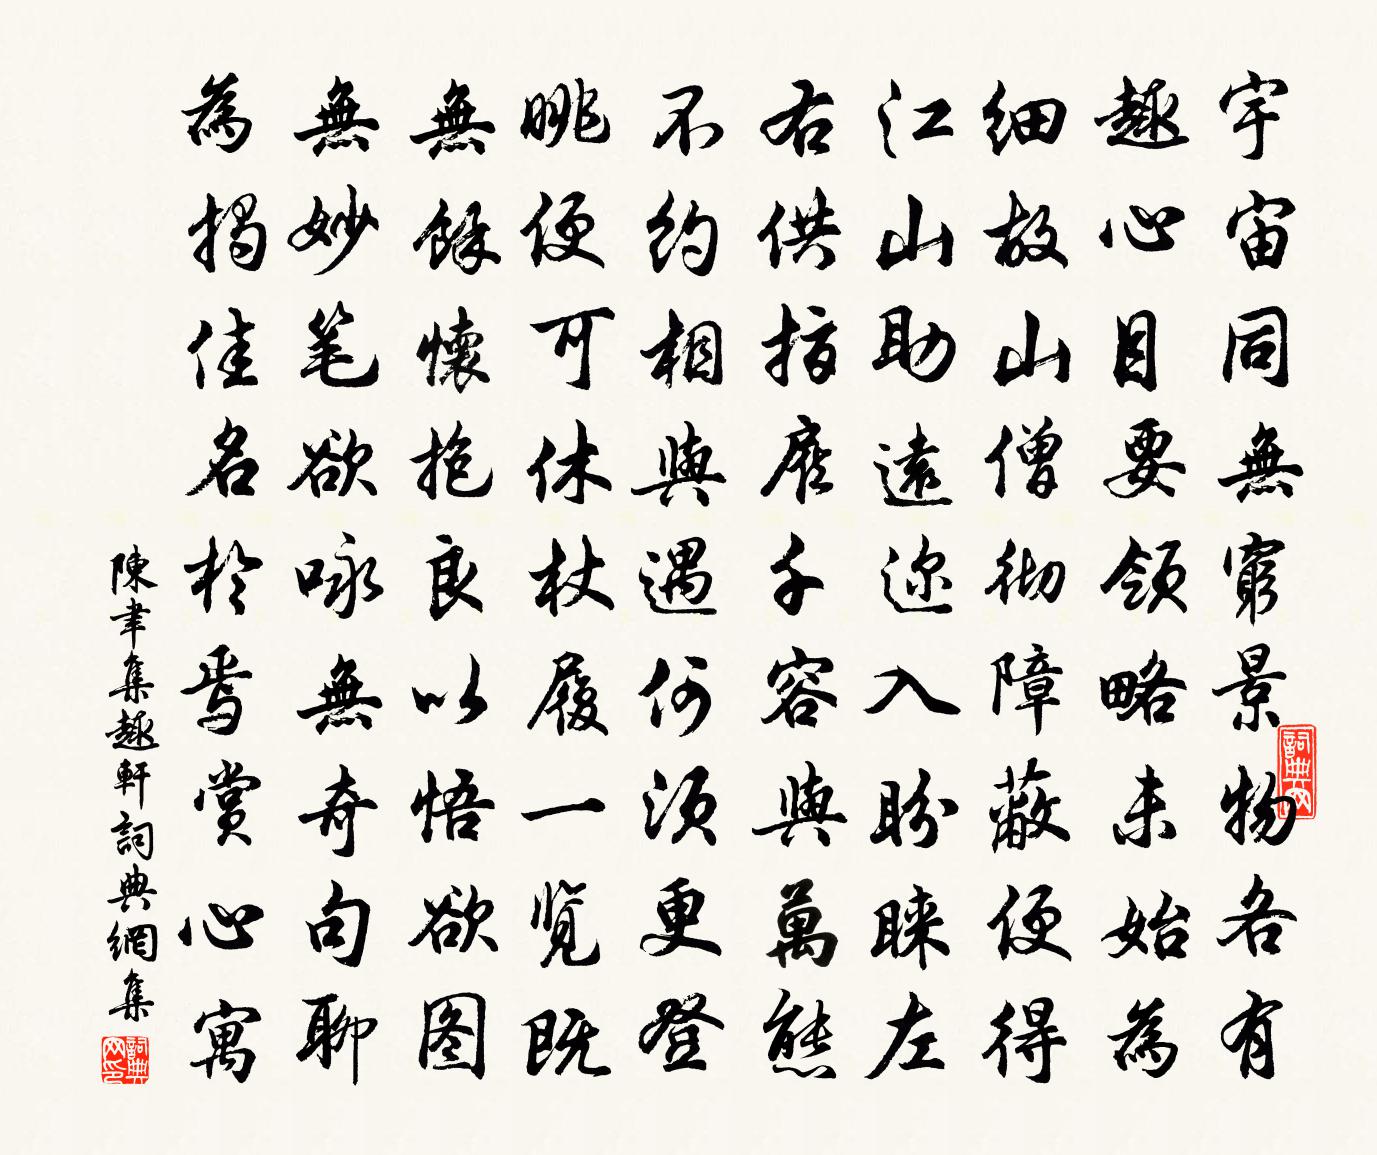 宇宙同無窮景物各有
趣心目要領略未始為
細故山僧彻障蔽便得
江山助遠迩入盼睞左
右供指麾千容與萬態
不約相與遇何須更登
眺便可休杖履一覽既
無餘懷抱良以悟欲图
無妙笔欲咏無奇句聊
為揭佳名於焉赏心寓
陳聿集趣軒詞典網集
詞典网
詞典网印